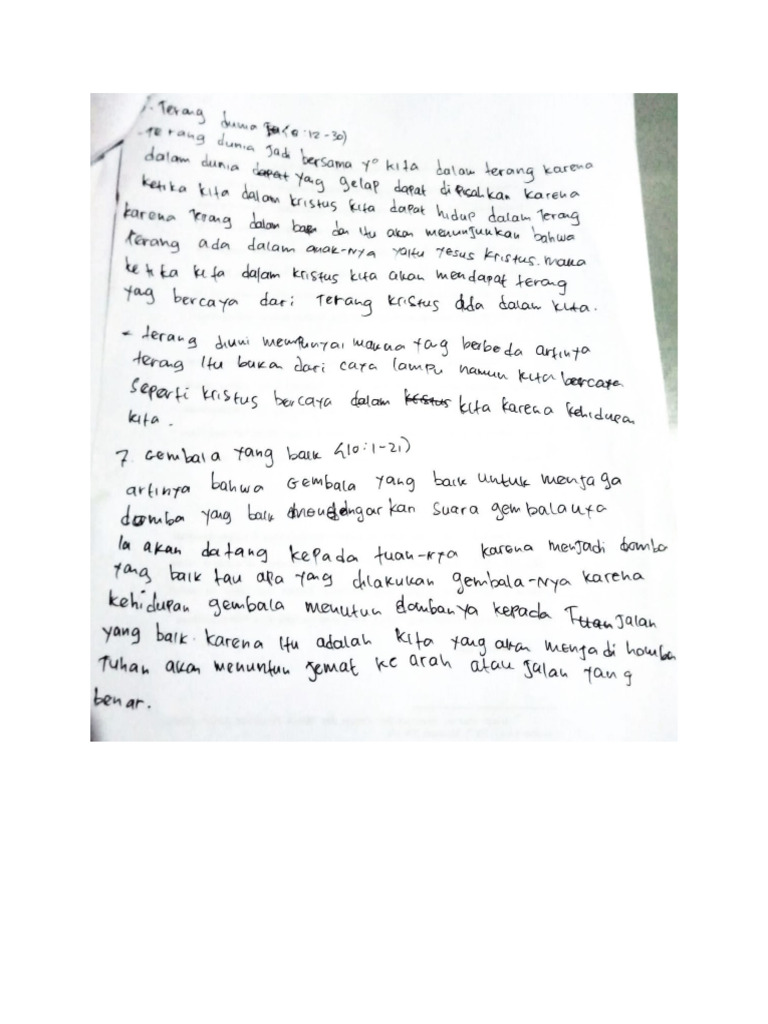 Terang dunia (8:12-30)
- Terang dunia jadi bersama yº kita dalam terang karena
dalam dunia dapat yang gelap dapat dipisahkan karena
ketika kita dalam kristus kita dapat hidup dalam Terang
karena terang dalam dan itu akan menunjukkan bahwa
Terang ada dalam anak-nya yaitu Yesus Kristus. maka
ketika kita dalam kristus kita akan mendapat terang
yag bercaya dari Terang kristus ada dalam kita.
- terang diuni mempunyai makna yang berbeda artinya
terang Itu bukan dari caya lampu namun kita bercaya
seperti kristus bercaya dalam kristus kita karena kehidupan
kita.
7. Gembala yang baik (10:1-21)
artinya bahwa Gembala yang baik untuk menjaga
domba yang baik mendengarkan suara gembalanya
Ia akan datang kepada tuan-nya karena menjadi domba
yang baik tau apa yang dilakukan gembala-Nya karena
kehidupan gembala menutun dombanya kepada Tuan Jalan
yang baik. karena Itu adalah kita yang akan menjadi homba
Tuhan akan menuntun jemat ke arah atau jalan yang
benar.